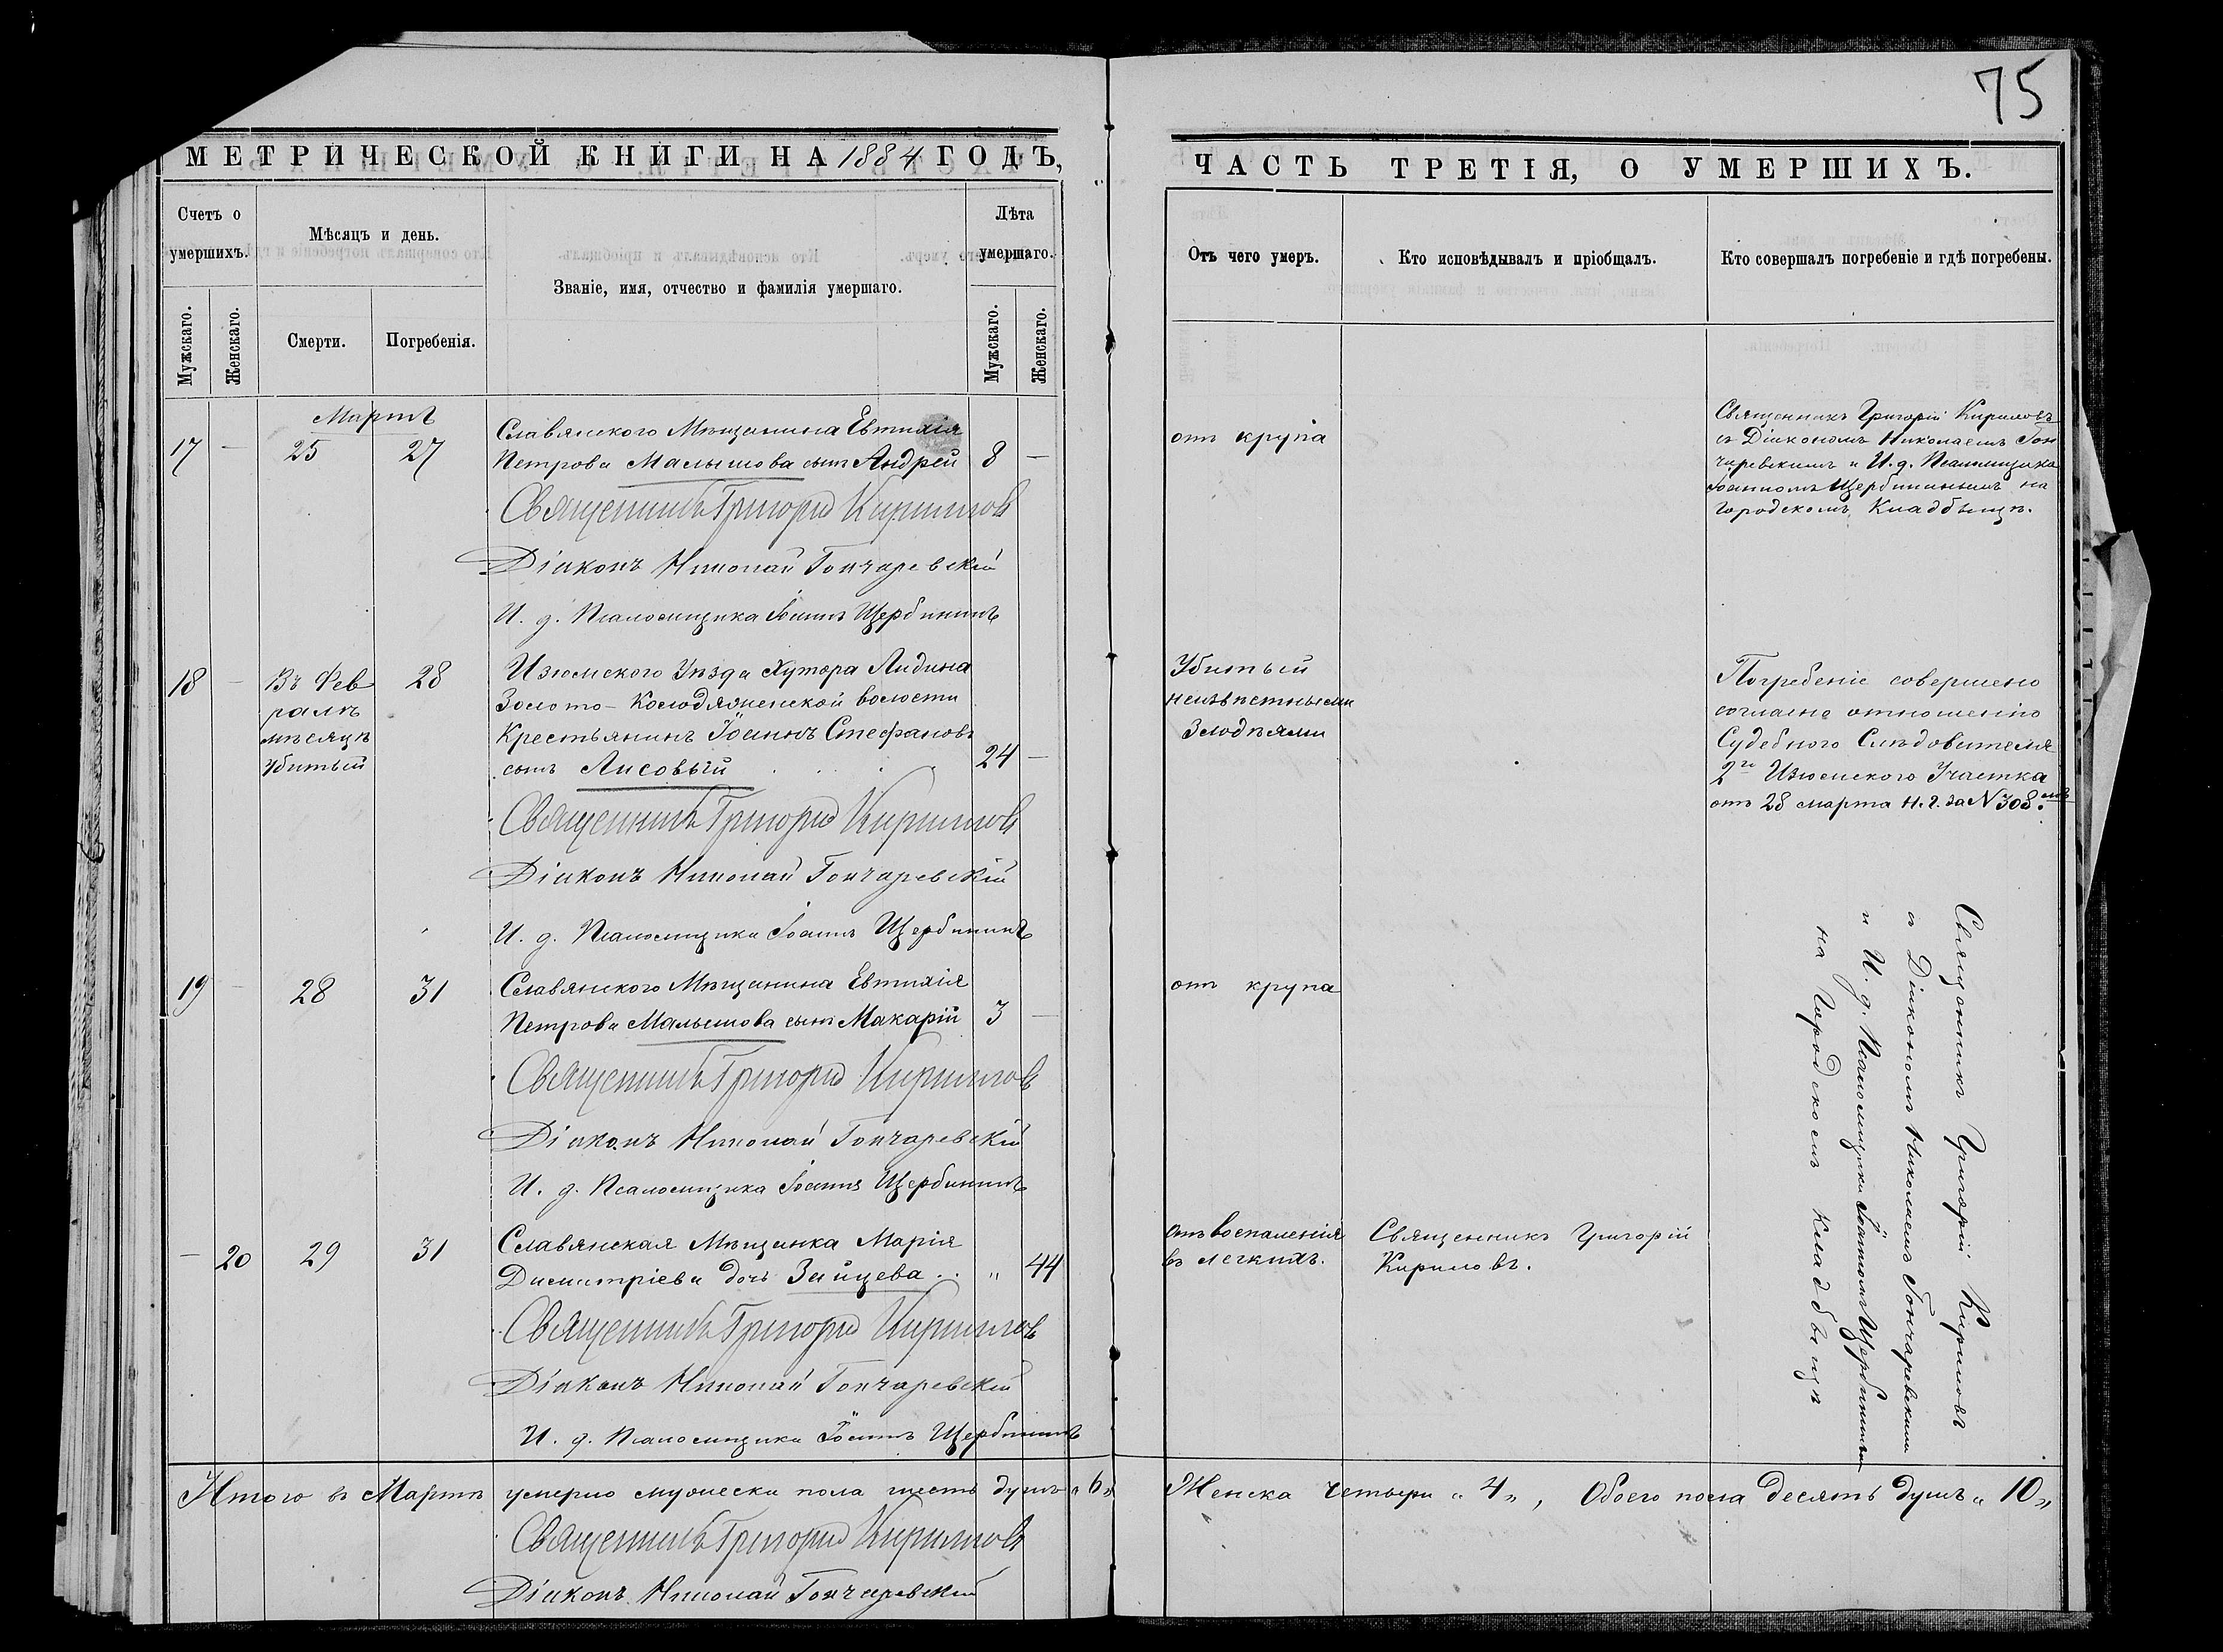 75
МЕТРИЧЕСКОЙ КНИГИ НА 1884 ГОДЪ,
Счетъ о умершихъ.
Мѣсяцъ и день.
Званіе, имя, отчество и фамилія умершаго.
Лѣта умершаго.
Мужскаго.
Женскаго.
Смерти.
Погребенія.
Мужскаго.
Женскаго.
Мартъ
17 — 25 27
Славянского Мѣщанина Евтихія
Петрова Малышова сынъ Андрей 8 —
Священникъ Григорій Кириловъ
Діаконъ Николай Гончаревскій
И. д. Псаломщика Іоаннъ Щербининъ
18 — Въ Фев
ралѣ
мѣсяцѣ
убитый
28
Изюмского Уѣзда Хутора Лидина
Золото-Колодяженской волости
Крестьянинъ Іоаннъ Стефановъ
сынъ Лисовый 24 —
Священникъ Григорій Кириловъ
Діаконъ Николай Гончаревскій
И. д. Псаломщика Іоаннъ Щербининъ
19 — 28 31
Славянского Мѣщанина Евтихія
Петрова Малышова сынъ Макарій 3 —
Священникъ Григорій Кириловъ
Діаконъ Николай Гончаревскій
И. д. Псаломщика Іоаннъ Щербининъ
— 20 29 31
Славянская Мѣщанка Марія
Димитріева дочь Зайцева . . „ 44
Священникъ Григорій Кириловъ
Діаконъ Николай Гончаревскій
И. д. Псаломщика Іоаннъ Щербининъ
Итого въ Мартѣ умерло мужеска пола шесть душъ „ 6 „
Священникъ Григорій Кириловъ
Діаконъ Николай Гончаревскій
ЧАСТЬ ТРЕТІЯ, О УМЕРШИХЪ.
Отъ чего умеръ.
Кто исповѣдывалъ и пріобщалъ.
Кто совершалъ погребеніе и гдѣ погребены.
отъ крупа
Священникъ Григорій Кириловъ
съ Діакономъ Николаемъ Гон
чаревскимъ и И. д. Псаломщика
Іоанномъ Щербининымъ на
Городскомъ Кладбищѣ.
Убитый
неизвѣстными
Злодѣями
Погребеніе совершено
согласно отношенію
Судебного Слѣдователя
2го Изюмского Участка
отъ 28 марта н. г. за N 308.мъ
отъ крупа
Священникъ Григорій Кириловъ
съ Діакономъ Николаемъ Гончаревскимъ
и И. д. Псаломщика Іоанномъ Щербининымъ
на Городскомъ Кладбищѣ
отъ воспаленія
въ легкихъ.
Священникъ Григорій
Кириловъ.
Женска четыри „ 4 „, Обоего пола десять душъ „ 10 „